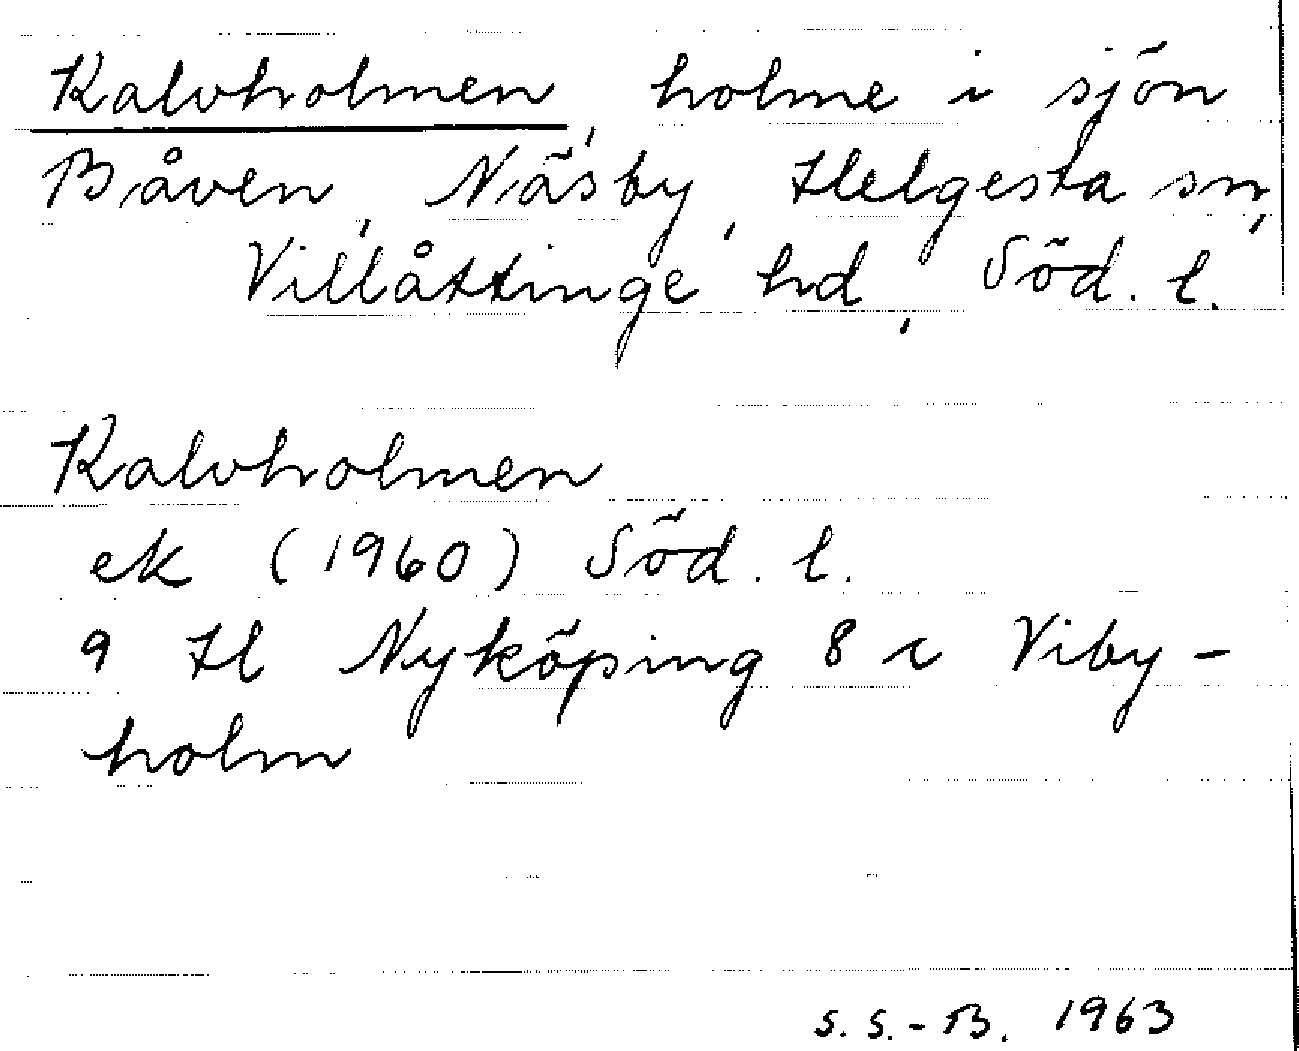 Kalvholmen, holme i sjön
Båven, Näsby, Helgesta sn,
Villåttinge hd, Söd. l.
Kalvholmen
ek (1960) Söd. l.
9 H Nyköping 8 c Viby-
holm
S. S.-B. 1963